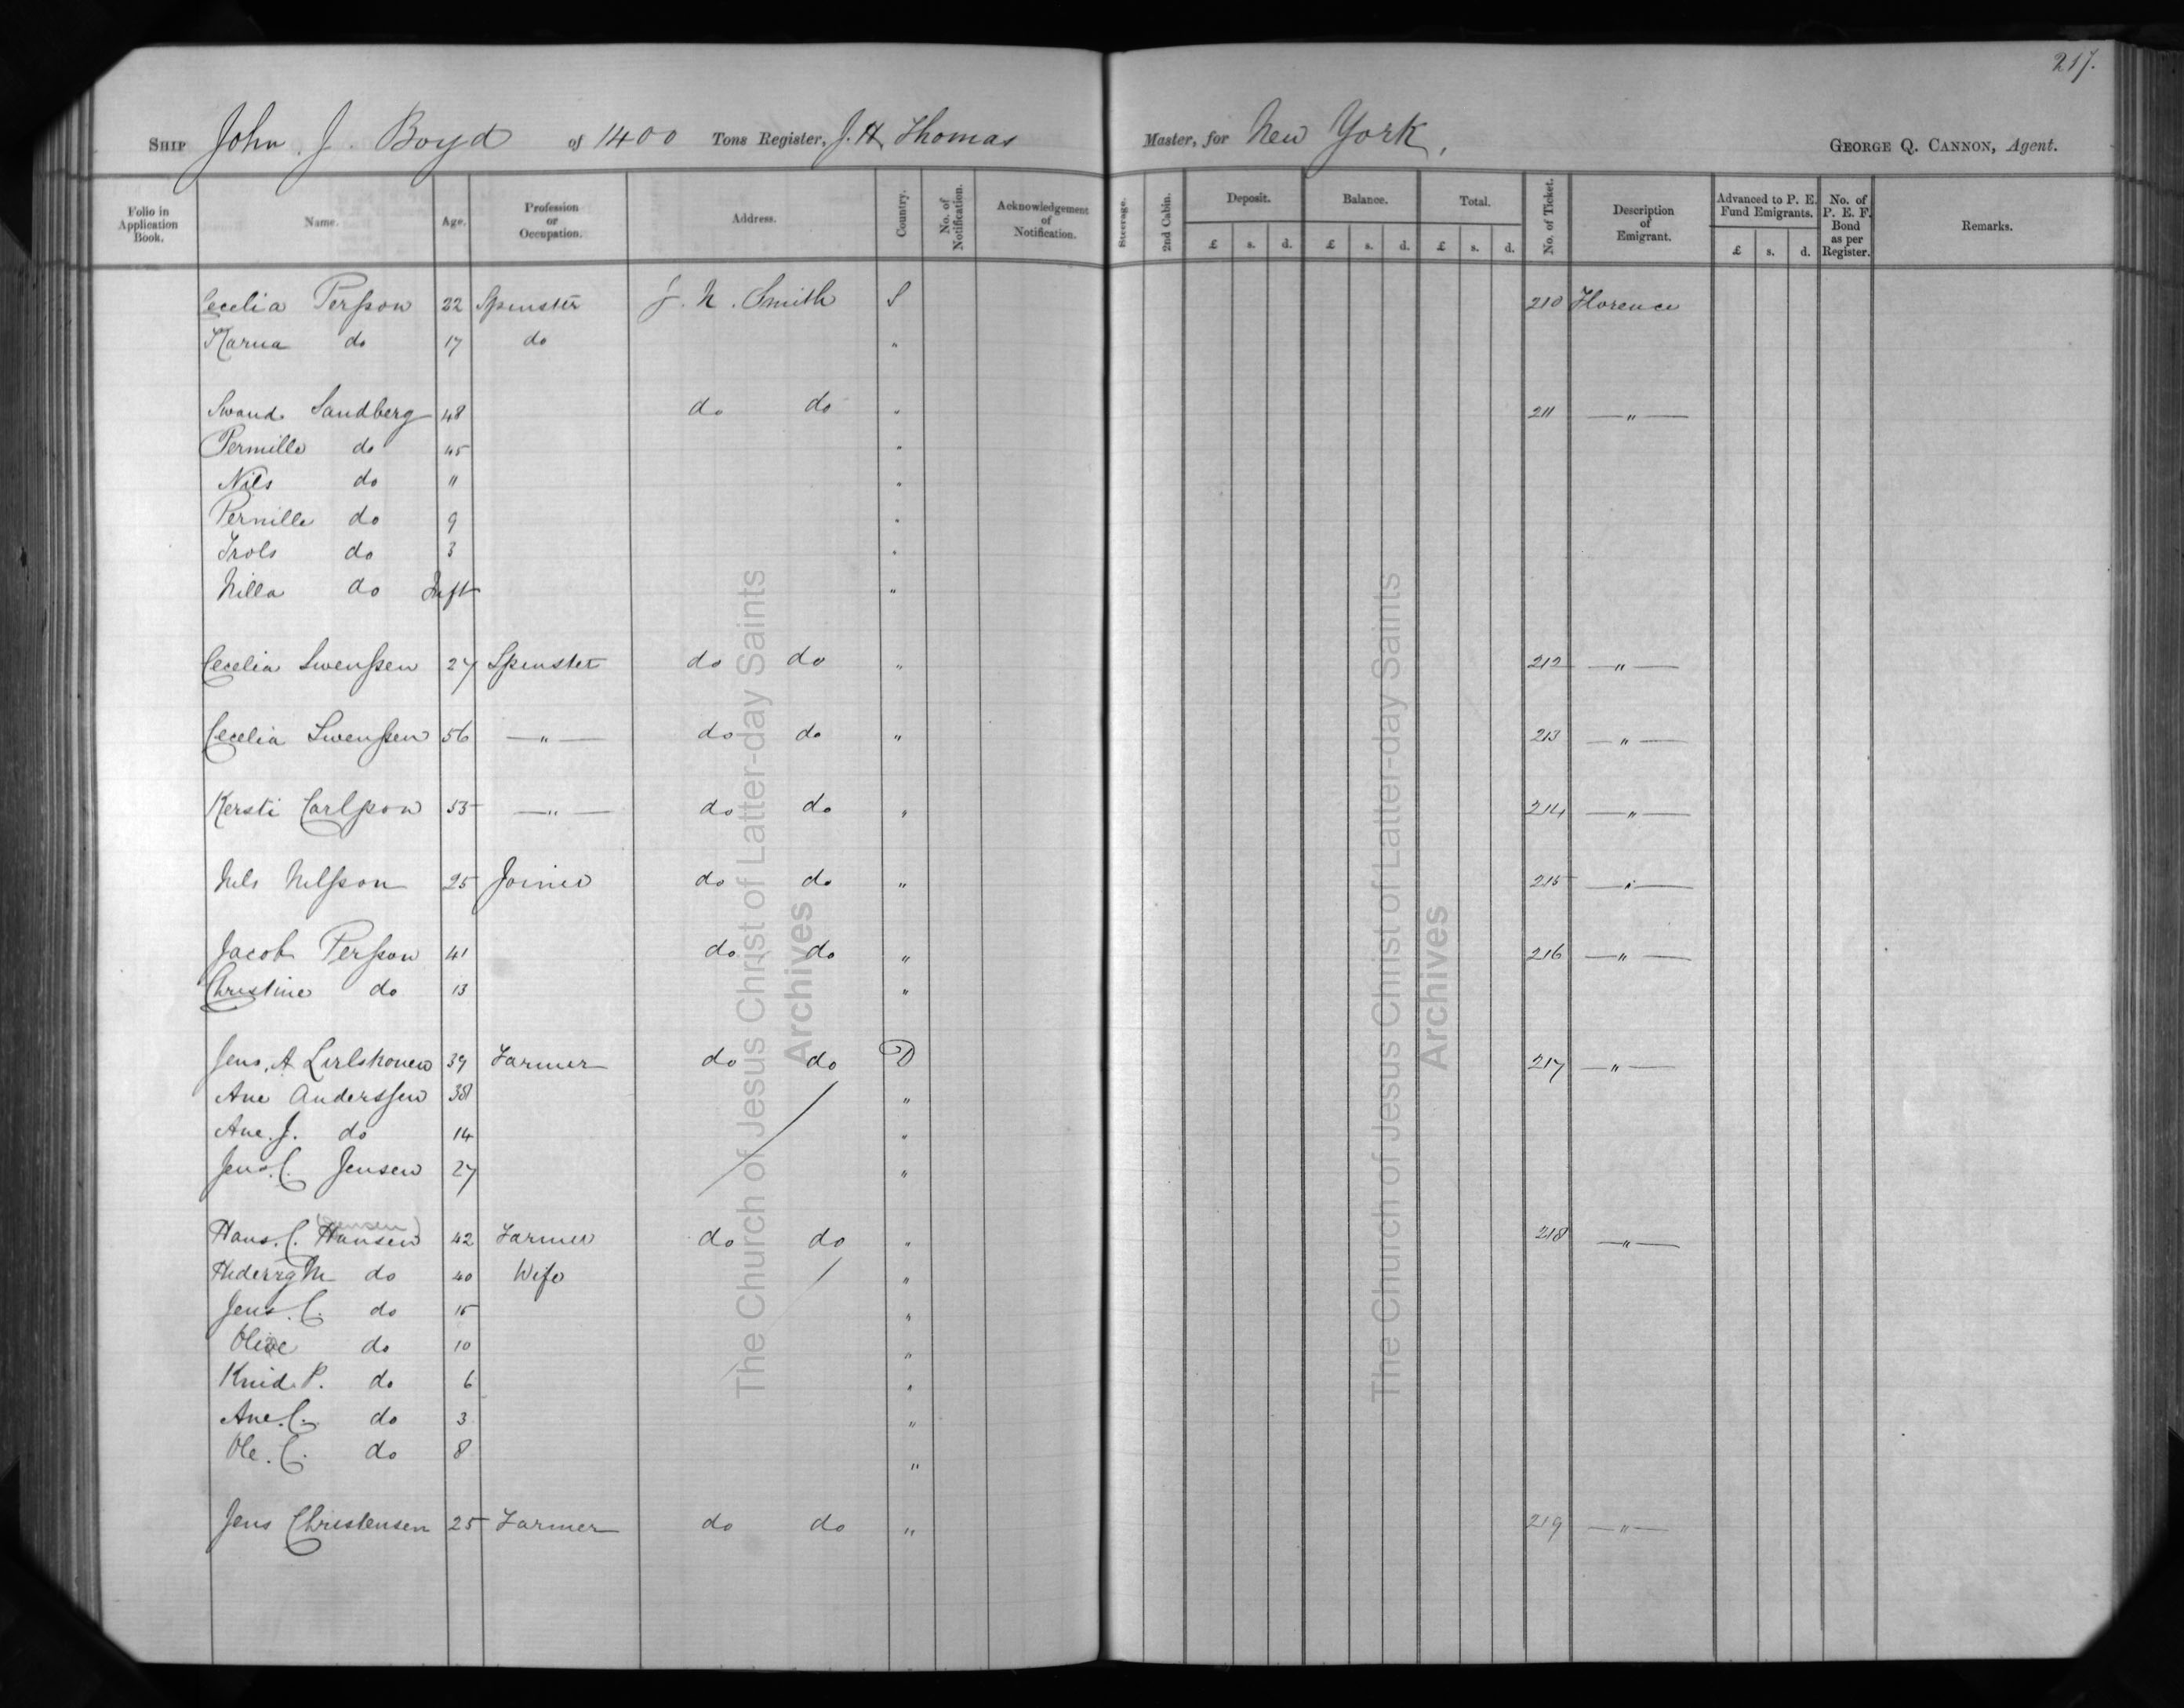 217.
SHIP John J. Boyd of 1400 Tons Register, J. H. Thomas Master, for New York, GEORGE Q. CANNON, Agent.
Folio in Application Book. Name. Age. Profession or Occupation. Address. Country. No. of Notification. Acknowledgement of Notification. Steerage. 2nd Cabin. Deposit. £ s. d. Balance. £ s. d. Total. £ s. d. No. of Ticket. Description of Emigrant. Advanced to P. E. Fund Emigrants. £ s. d. No. of P. E. F. Bond as per Register. Remarks.
Cecelia Persson 22 Spinster J. N. Smith S 210 Florence
Karna do 17 do "
Swand Sandberg 48 do do " 211 — " —
Pernille do 45 "
Nils do 11 "
Pernille do 9 "
Trols do 3 "
Nilla do Inft "
Cecelia Swenssen 27 Spinster do do " 212 — " —
Cecelia Swenssen 56 — " — do do " 213 — " —
Kersti Carlsson 53 — " — do do " 214 — " —
Nils Nilsson 25 Joiner do do " 215 — " —
Jacob Persson 41 do do " 216 — " —
Christine do 13 "
Jens. A 39 Farmer do do D 217 — " —
Ane Anderssen 38 "
Ane. J. do 14 "
Jens. C. Jensen 27 "
(Jensen)
Hans. C. Hansen 42 Farmer do do " 218 — " —
do 40 Wife "
Jens. C. do 15 "
do 10 "
Knud. P. do 6 "
Ane. C. do 3 "
Ole. C. do 8 "
Jens Christensen 25 Farmer do do " 219 — " —
The Church of Jesus Christ of Latter-day Saints
Archives
The Church of Jesus Christ of Latter-day Saints
Archives